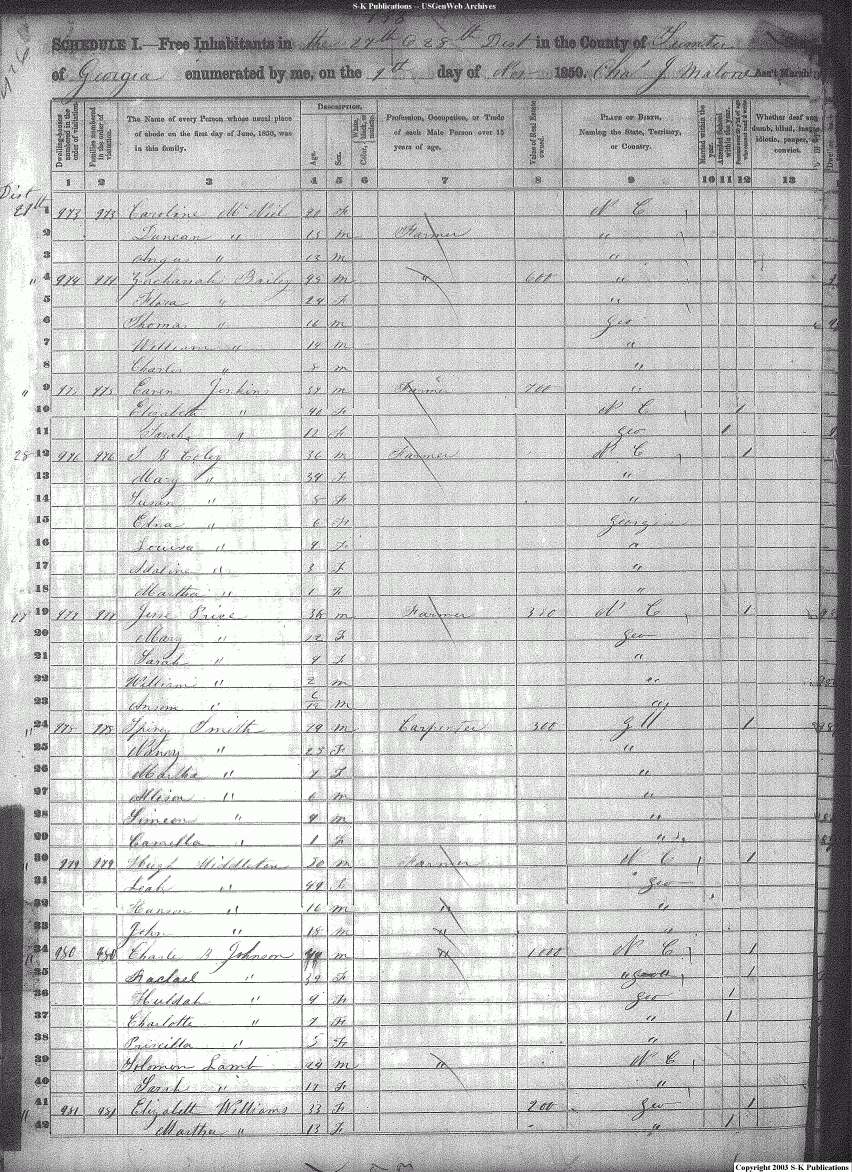 S-K Publications -- USGenWeb Archives
SCHEDULE I.—Free Inhabitants in the 27th & 28th Dist in the County of Sumter State
of Georgia enumerated by me, on the 1st day of Nov 1850. Chas J Malone Ass't Marshal
Dwelling-houses numbered in the order of visitation.
Families numbered in the order of visitation.
The Name of every Person whose usual place of abode on the first day of June, 1850, was in this family.
DESCRIPTION.
Age.
Sex.
Color, White, black, or mulatto.
Profession, Occupation, or Trade of each Male Person over 15 years of age.
Value of Real Estate owned.
PLACE OF BIRTH, Naming the State, Territory, or Country.
Married within the year.
Attended School within the year.
Persons over 20 y'rs of age who cannot read & write.
Whether deaf and dumb, blind, insane, idiotic, pauper, or convict.
1 2 3 4 5 6 7 8 9 10 11 12 13
Dist 27th
1 973 973 Caroline McNeil F N C
2 Duncan " 15 m Farmer "
3 Angus " 13 m "
4 974 974 Zachariah Bailey 45 m " 600 "
5 Flora " F "
6 Thomas " 16 m Geo
7 William " 14 m "
8 Charles " 8 m "
9 975 975 Jenkins 38 m Farmer 700 "
10 Elizabeth " 40 F N C 1
11 Sarah " 12 F Geo 1
28 12 976 976 36 m Farmer N C 1
13 Mary " 34 F "
14 Susan " 8 F "
15 Edna " 6 F Georgia
16 Louisa " 4 F "
17 Adaline " 3 F "
18 Martha " 1 F "
27 19 977 977 Jesse Price 38 m Farmer N C 1
20 Mary " F Geo
21 Sarah " 4 F "
22 William " 2 m "
23 Anson " 6/12 m "
24 978 978 Spivey Smith m Carpenter 300 1
25 Nancy " 25 F "
26 Martha " 7 F "
27 Alison " 6 m "
28 Simeon " 4 m "
29 Camilla " 1 F "
30 979 979 Hugh Middleton m Farmer N C 1
31 Leah " 44 F Geo
32 Hanson " 16 m " "
33 John " 15 m " "
34 980 980 Charles Johnson m " 1000 N C 1
35 Rachael " 39 F " 1
36 Huldah " 9 F Geo 1
37 Charlotte " 7 F " 1
38 Priscilla " 5 F "
39 Solomon Lamb 24 m " N C
40 Sarah " 17 F "
41 981 981 Elizabeth Williams 33 F 200 Geo 1
42 Martha " 13 F " 1
Copyright 2003 S-K Publications